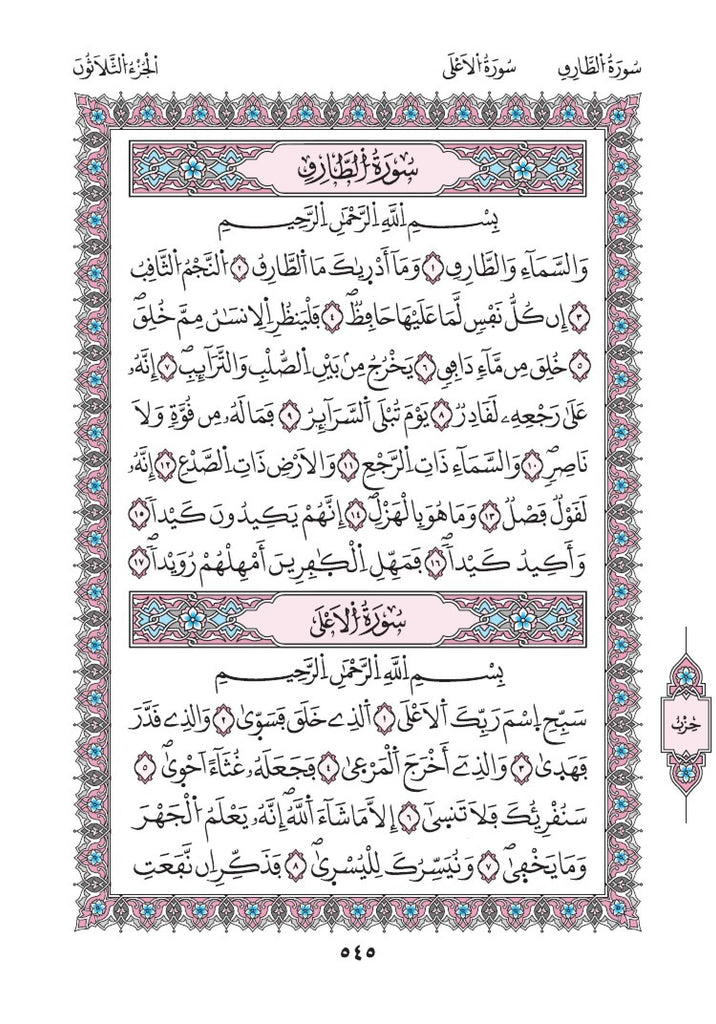 سُورَةُ الطَّارِقِ
سُورَةُ الَاعْلَى
الْجُزْءُ الثَّلَاثُونَ
سُورَةُ الطَّارِقِ
بِسْمِ اِللَّهِ اِلرَّحْمَٰنِ اِلرَّحِيمِ
وَالسَّمَآءِ وَالطَّارِقِ ١ وَمَآ أَدْر۪يٰكَ مَا اَلطَّارِقُ ٢ اَلنَّجْمُ اُلثَّاقِبُ
٣ إِن كُلُّ نَفْسٖ لَّمَا عَلَيْهَا حَافِظٞ ٤ فَلْيَنظُرِ اِلِانسَٰنُ مِمَّ خُلِقَ
٥ خُلِقَ مِن مَّآءٖ دَافِقٖ ٦ يَخْرُجُ مِنۢ بَيْنِ اِلصُّلْبِ وَالتَّرَآئِبِ ٧ إِنَّهُۥ
عَلَىٰ رَجْعِهِۦ لَقَادِرٞ ٨ يَوْمَ تُبْلَى اَلسَّرَآئِرُ ٩ فَمَا لَهُۥ مِن قُوَّةٖ وَلَا
نَاصِرٖ ١٠ وَالسَّمَآءِ ذَاتِ اِلرَّجْعِ ١١ وَالَارْضِ ذَاتِ اِلصَّدْعِ ١٢ إِنَّهُۥ
لَقَوْلٞ فَصْلٞ ١٣ وَمَا هُوَ بِالْهَزْلِ ١٤ إِنَّهُمْ يَكِيدُونَ كَيْداٗ ١٥
وَأَكِيدُ كَيْداٗ ١٦ فَمَهِّلِ اِلْكٰ۪فِرِينَ أَمْهِلْهُمْ رُوَيْداَۢ ١٧
سُورَةُ الَاعْلَى
بِسْمِ اِللَّهِ اِلرَّحْمَٰنِ اِلرَّحِيمِ
سَبِّحِ اِسْمَ رَبِّكَ اَلَاعْلَى ١ اَلذِے خَلَقَ فَسَوّ۪يٰ ٢ وَالذِے قَدَّرَ
فَهَد۪يٰ ٣ وَالذِےٓ أَخْرَجَ اَلْمَرْع۪يٰ ٤ فَجَعَلَهُۥ غُثَآءً اَحْو۪يٰ ٥
سَنُقْرِئُكَ فَلَا تَنس۪يٰٓ ٦ إِلَّا مَا شَآءَ اَللَّهُ إِنَّهُۥ يَعْلَمُ اُلْجَهْرَ
وَمَا يَخْف۪يٰ ٧ وَنُيَسِّرُكَ لِلْيُسْر۪يٰ ٨ فَذَكِّرِ اِن نَّفَعَتِ
حِزْب
٥٤٥